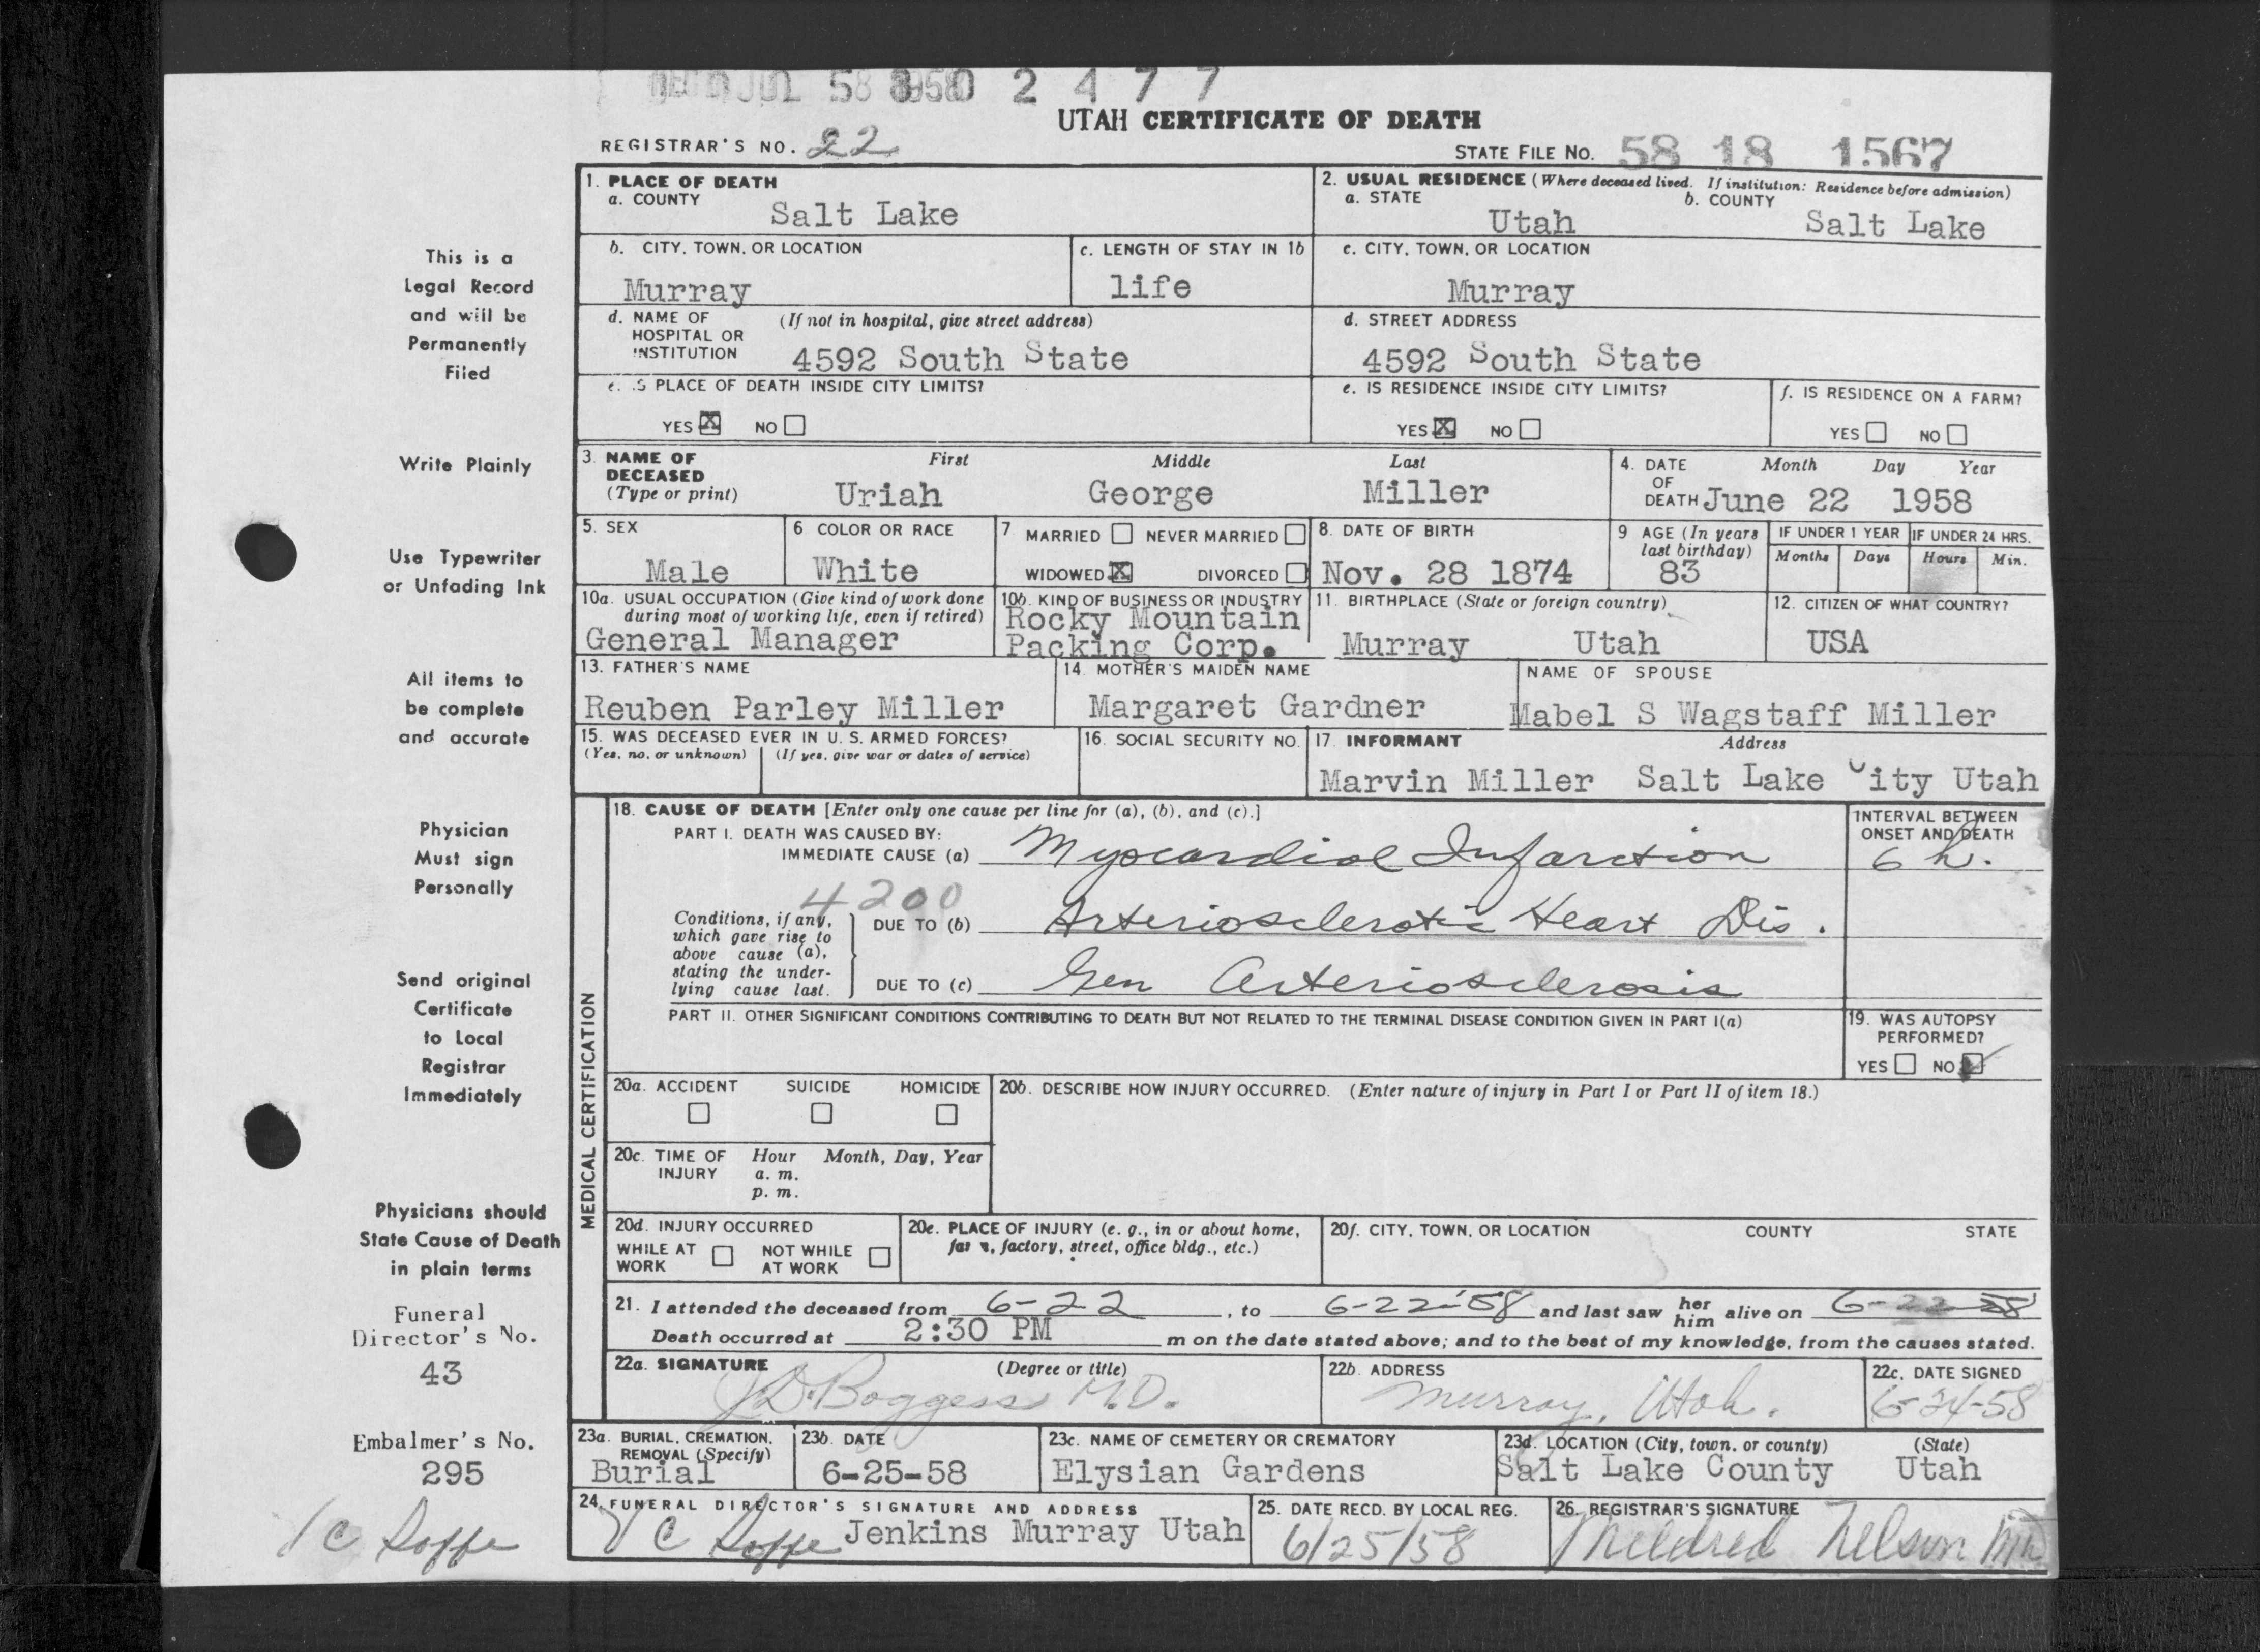 58 0 2 4 7 7
UTAH CERTIFICATE OF DEATH
REGISTRAR'S NO. 22
STATE FILE NO. 58 18 1567
1. PLACE OF DEATH
a. COUNTY
Salt Lake
2. USUAL RESIDENCE (Where deceased lived. If institution: Residence before admission)
a. STATE b. COUNTY
Utah Salt Lake
b. CITY, TOWN, OR LOCATION
Murray
c. LENGTH OF STAY IN 1b
life
c. CITY, TOWN, OR LOCATION
Murray
d. NAME OF HOSPITAL OR INSTITUTION
(If not in hospital, give street address)
4592 South State
d. STREET ADDRESS
4592 South State
e. IS PLACE OF DEATH INSIDE CITY LIMITS?
YES X NO
e. IS RESIDENCE INSIDE CITY LIMITS?
YES X NO
f. IS RESIDENCE ON A FARM?
YES NO
3. NAME OF DECEASED
(Type or print)
First Middle Last
Uriah George Miller
4. DATE OF DEATH
Month Day Year
June 22 1958
5. SEX
Male
6 COLOR OR RACE
White
7 MARRIED NEVER MARRIED
WIDOWED X DIVORCED
8. DATE OF BIRTH
Nov. 28 1874
9 AGE (In years last birthday)
83
IF UNDER 1 YEAR
Months Days
IF UNDER 24 HRS.
Hours Min.
10a. USUAL OCCUPATION (Give kind of work done
during most of working life, even if retired)
General Manager
10b. KIND OF BUSINESS OR INDUSTRY
Rocky Mountain
Packing Corp.
11. BIRTHPLACE (State or foreign country)
Murray Utah
12. CITIZEN OF WHAT COUNTRY?
USA
13. FATHER'S NAME
Reuben Parley Miller
14. MOTHER'S MAIDEN NAME
Margaret Gardner
NAME OF SPOUSE
Mabel S Wagstaff Miller
15. WAS DECEASED EVER IN U. S. ARMED FORCES?
(Yes, no, or unknown) (If yes, give war or dates of service)
16. SOCIAL SECURITY NO.
17. INFORMANT Address
Marvin Miller Salt Lake City Utah
MEDICAL CERTIFICATION
18. CAUSE OF DEATH [Enter only one cause per line for (a), (b), and (c).]
PART I. DEATH WAS CAUSED BY:
IMMEDIATE CAUSE (a) Myocardial Infarction
INTERVAL BETWEEN
ONSET AND DEATH
6 h.
4200
Conditions, if any,
which gave rise to
above cause (a),
stating the under-
lying cause last.
DUE TO (b) Arteriosclerotic Heart Dis.
DUE TO (c) Gen Arteriosclerosis
PART II. OTHER SIGNIFICANT CONDITIONS CONTRIBUTING TO DEATH BUT NOT RELATED TO THE TERMINAL DISEASE CONDITION GIVEN IN PART I(a)
19. WAS AUTOPSY
PERFORMED?
YES NO ✓
20a. ACCIDENT SUICIDE HOMICIDE
20b. DESCRIBE HOW INJURY OCCURRED. (Enter nature of injury in Part I or Part II of item 18.)
20c. TIME OF INJURY
Hour Month, Day, Year
a. m.
p. m.
20d. INJURY OCCURRED
WHILE AT WORK NOT WHILE AT WORK
20e. PLACE OF INJURY (e. g., in or about home,
farm, factory, street, office bldg., etc.)
20f. CITY, TOWN, OR LOCATION COUNTY STATE
21. I attended the deceased from 6-22, to 6-22-58 and last saw her him alive on 6-22-58
Death occurred at 2:30 PM m on the date stated above; and to the best of my knowledge, from the causes stated.
22a. SIGNATURE (Degree or title)
JD Boggess M.D.
22b. ADDRESS
Murray, Utah.
22c. DATE SIGNED
6-24-58
23a. BURIAL, CREMATION,
REMOVAL (Specify)
Burial
23b. DATE
6-25-58
23c. NAME OF CEMETERY OR CREMATORY
Elysian Gardens
23d. LOCATION (City, town, or county) (State)
Salt Lake County Utah
24. FUNERAL DIRECTOR'S SIGNATURE AND ADDRESS
Jenkins Murray Utah
25. DATE RECD. BY LOCAL REG.
6/25/58
26. REGISTRAR'S SIGNATURE
Mildred Nelson
This is a
Legal Record
and will be
Permanently
Filed
Write Plainly
Use Typewriter
or Unfading Ink
All items to
be complete
and accurate
Physician
Must sign
Personally
Send original
Certificate
to Local
Registrar
Immediately
Physicians should
State Cause of Death
in plain terms
Funeral
Director's No.
43
Embalmer's No.
295